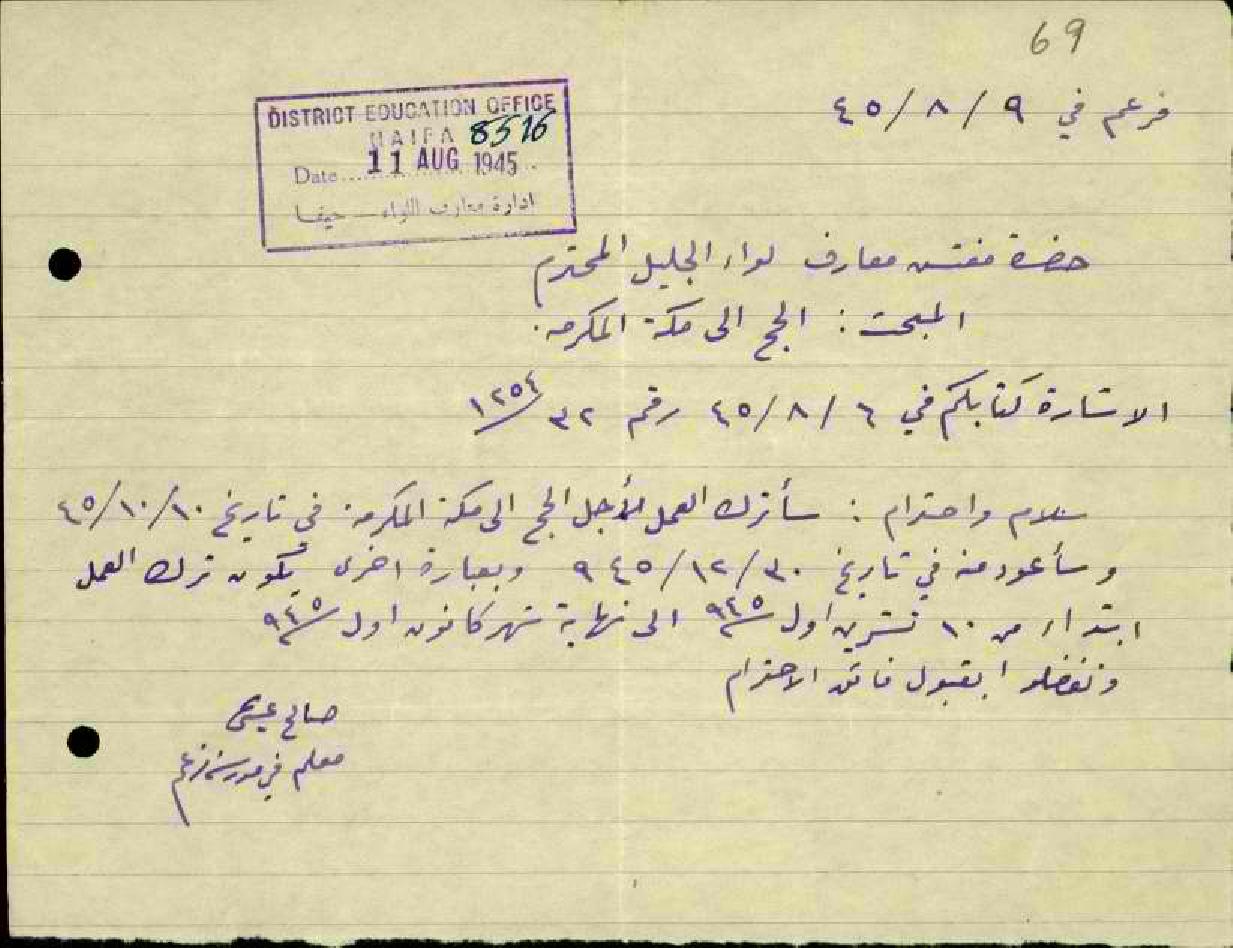 69
فرعم في ٩ / ٨ / ٤٥
DISTRICT EDUCATION OFFICE
HAIFA 8516
Date 11 AUG 1945
ادارة معارف اللواء - حيفا
حضرة مفتش معارف لواء الجليل المحترم
المبحث : الحج الى مكة المكرمة.
الاشارة كتابكم في ٦ / ٨ / ٤٥ رقم ٣٢ / ١٢٥٤
سلام واحترام : سأترك العمل لأجل الحج الى مكة المكرمة في تاريخ ١٠/١٠/٤٥
وسأعود منه في تاريخ ٣٠/١٢/٩٤٥ وبعبارة اخرى يكون ترك العمل
ابتداء من ١٠ تشرين اول سنة ٩٤٥ الى نهاية شهر كانون اول سنة ٩٤٥
وتفضلوا بقبول فائق الاحترام
صالح عيسى
معلم في مدرسة فرعم